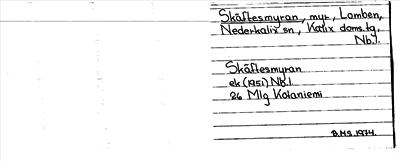 Skäftesmyran, myr, Lomben,
Nederkalix sn, Kalix doms.tg,
Nb.l.
Skäftesmyran
ek (1951) Nb.l
26 Mlg Kalaniemi
B.H.S. 1974.